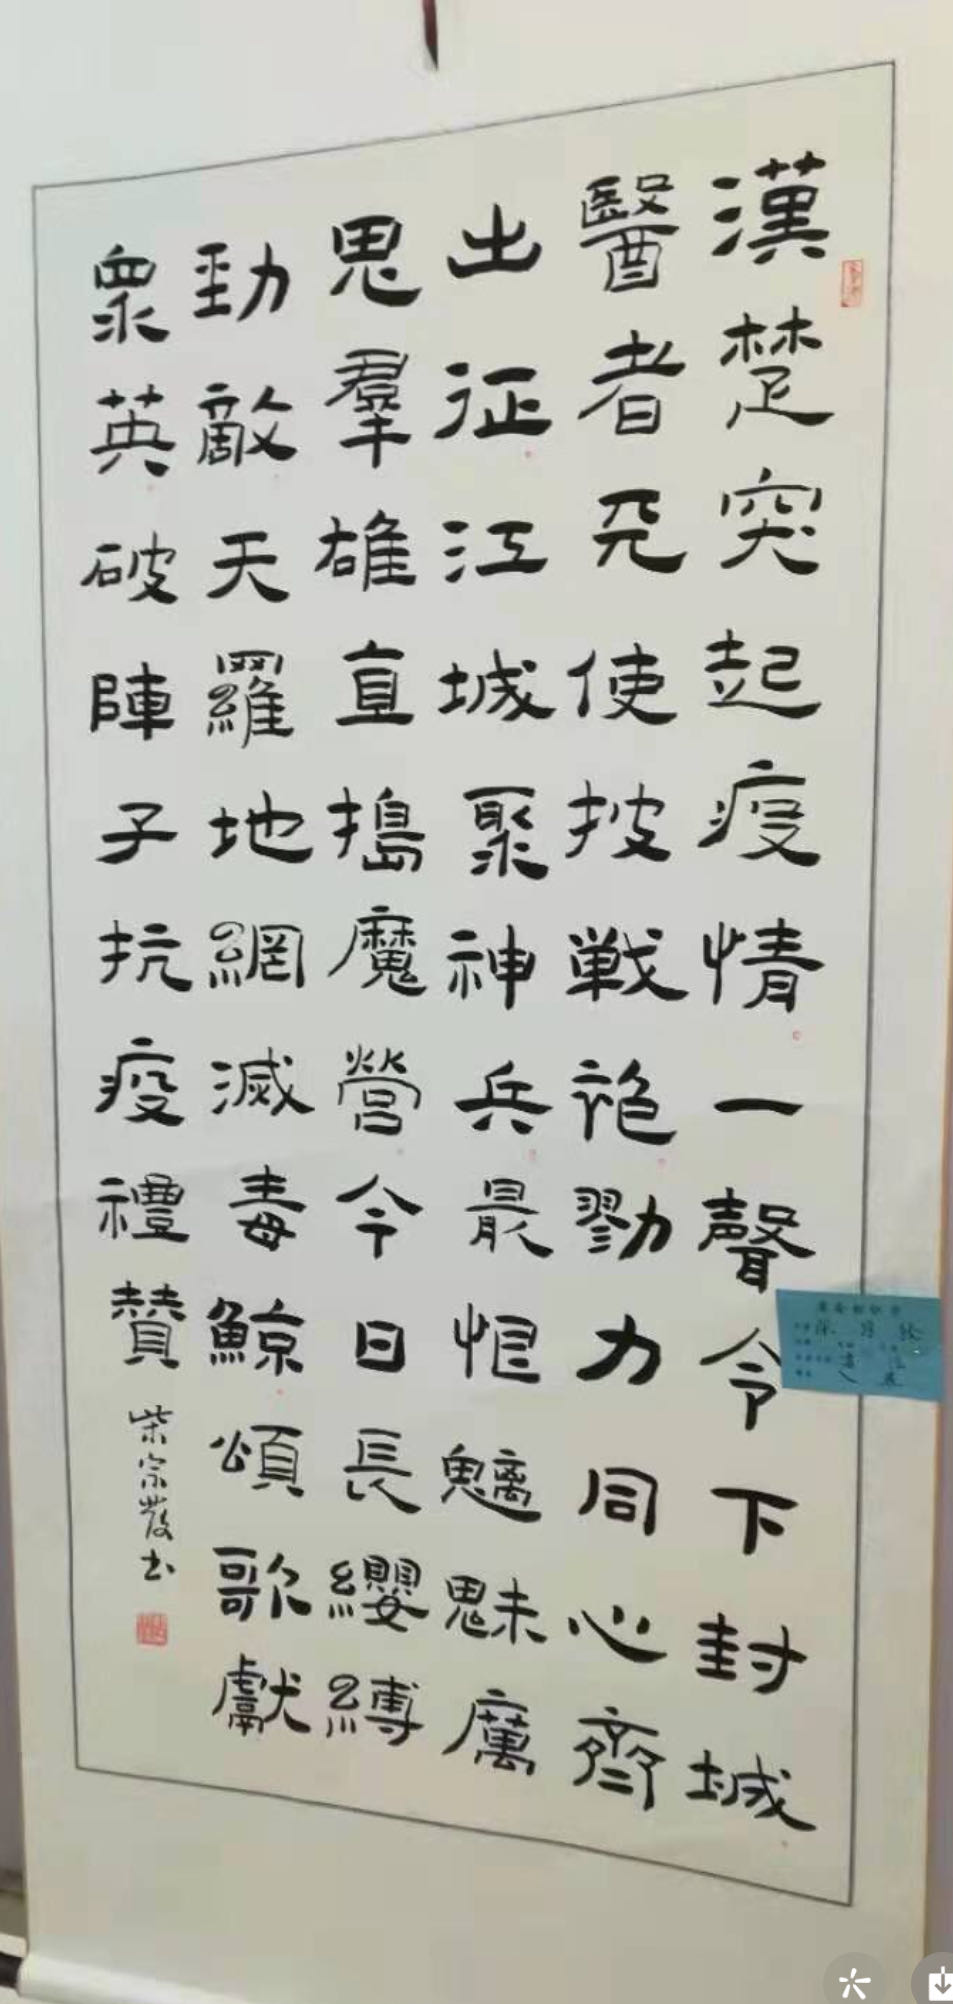 漢楚突起疫情一聲令下封城
醫者天使披戰袍勠力同心齊
出征江城聚神兵最恨魑魅厲
思羣雄直搗魔營今日長纓縛
勁敵天羅地網滅毒鯨頌歌獻
衆英破陣子抗疫禮贊
柴宗發书